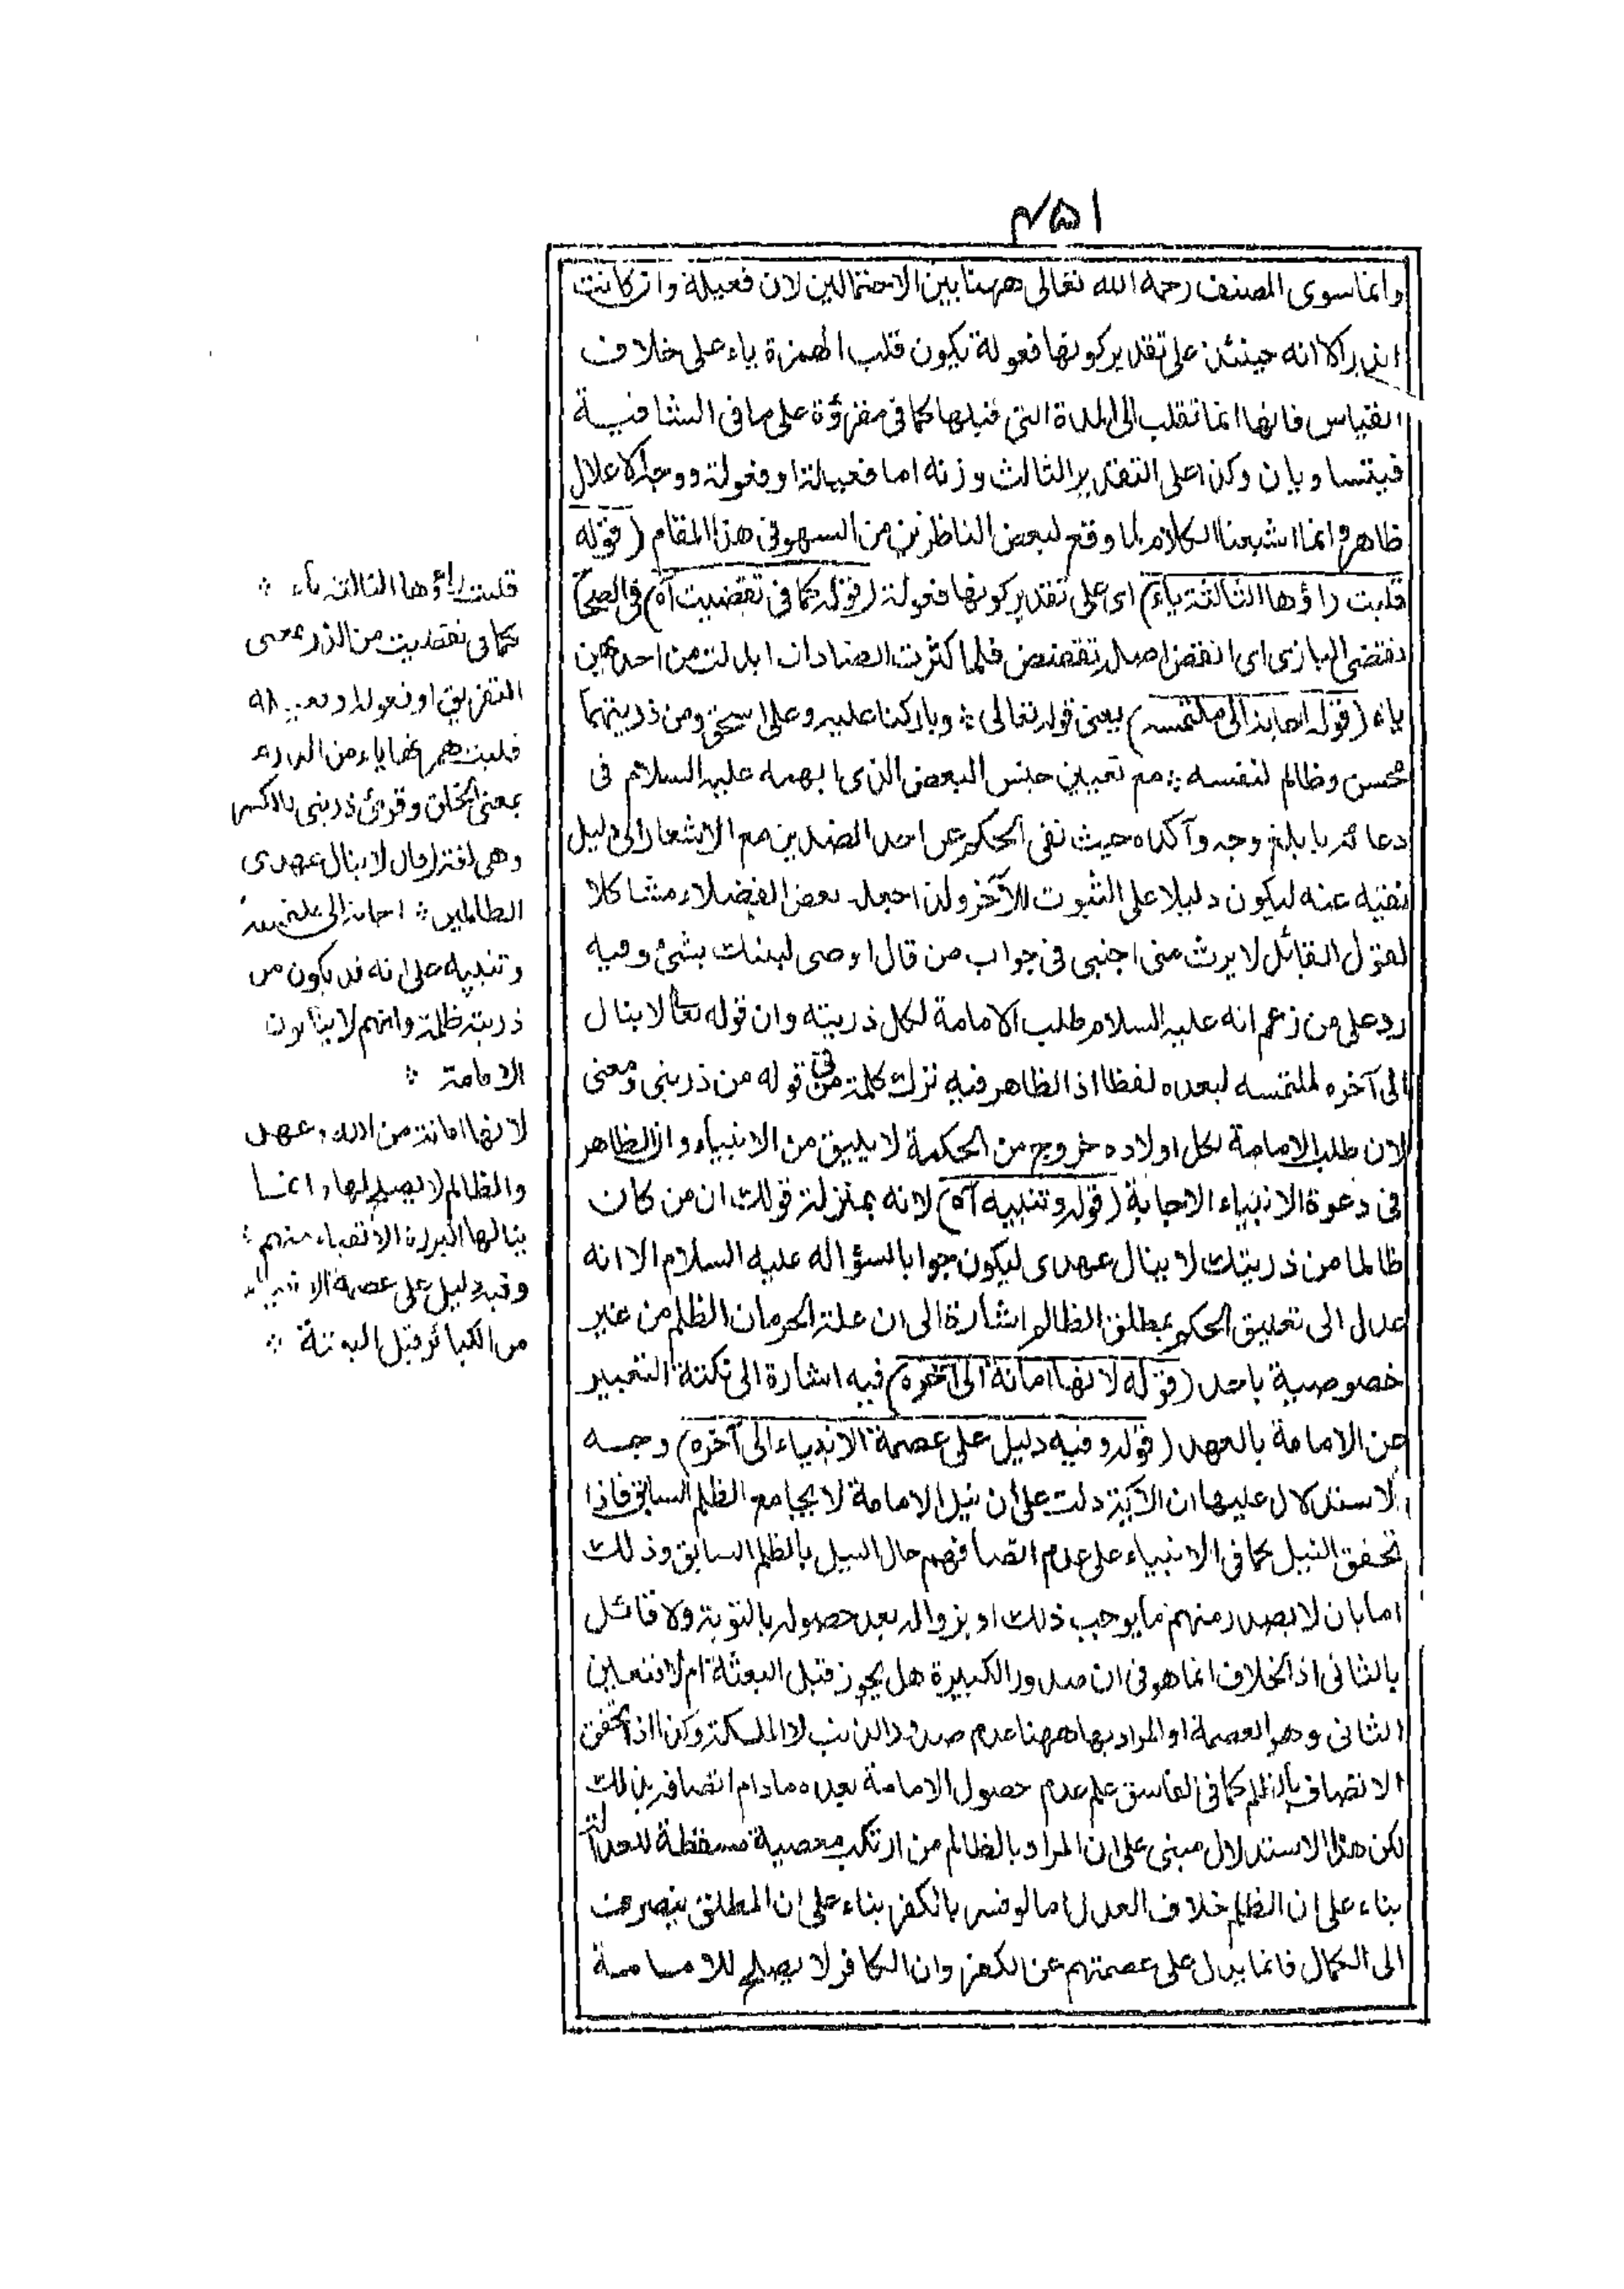 ٤٥١
وانما سوى المصنف رحمه الله تعالى ههنا بين الاحتمالين لان فعيلة وان كانت
اندر الا انه حينئذ على تقدير كونها فعولة يكون قلب الهمزة ياء على خلاف
القياس فانها انما تقلب الى المدة التى قبلها كما فى مقروّة على ما فى الشافية
فيتساويان وكذا على التقدير الثالث وزنه اما فعيلة او فعولة ووجه الاعلال
ظاهر وانما اشبعنا الكلام لما وقع لبعض الناظرين من السهو فى هذا المقام (قوله
قلبت راؤها الثالثة ياء) اى على تقدير كونها فعولة (قوله كما فى تقضيت آه) فى الصحاح
تقضى البازى اى انقض اصله تقضض فلما كثرت الضادات ابدلت من احديهن
ياء (قوله اجابة الى ملتمسه) يعنى قوله تعالى ؞ وباركنا عليه وعلى اسحق ومن ذريتهما
محسن وظالم لنفسه ؞ مع تعيين جنس البعض الذى ابهمه عليه السلام فى
دعائه بابلغ وجه وآكده حيث نفى الحكم عن احد الضدين مع الاشعار الى دليل
نفيه عنه ليكون دليلا على الثبوت للآخر ولذا جعله بعض الفضلاء مشاكلا
لقول القائل لا يرث منى اجنبى فى جواب من قال اوصى لبنتك بشئ وفيه
رد على من زعم انه عليه السلام طلب الامامة لكل ذريته وان قوله تعا لا ينال
الى آخره لملتمسه لبعده لفظا اذ الظاهر فيه ترك كلمة من فى قوله من ذريتى ومعنى
لان طلب الامامة لكل اولاده خروج من الحكمة لا يليق من الانبياء وان الظاهر
فى دعوة الانبياء الاجابة (قوله وتنبيه آه) لانه بمنزلة قولك ان من كان
ظالما من ذريتك لا ينال عهدى ليكون جوابا لسؤاله عليه السلام الا انه
عدل الى تعليق الحكم بمطلق الظالم اشارة الى ان علة الحرمان الظلم من غير
خصوصية باحد (قوله لانها امانة الى آخره) فيه اشارة الى نكتة التعبير
عن الامامة بالعهد (قوله وفيه دليل على عصمة الانبياء الى آخره) وجه
الاستدلال عليها ان الآية دلت على ان نيل الامامة لا يجامع الظلم السابق فاذا
تحقق النيل كما فى الانبياء على عدم اتصافهم حال النيل بالظلم السابق وذلك
اما بان لا يصدر منهم ما يوجب ذلك او بزواله بعد حصوله بالتوبة ولا قائل
بالثانى اذ الخلاف انما هو فى ان صدور الكبيرة هل يجوز قبل البعثة ام لا فتعين
الثانى وهو العصمة او المراد بها ههنا عدم صدور الذنب لا الملكة وكذا اذا تحقق
الاتصاف بالظلم كما فى الفاسق علم عدم حصول الامامة بعده ما دام اتصافه بذلك
لكن هذا الاستدلال مبنى على ان المراد بالظالم من ارتكب معصية مسقطة للعدالة
بناء على ان الظلم خلاف العدل اما لو فسر بالكفر بناء على ان المطلق ينصرف
الى الكمال فانما يدل على عصمتهم عن الكفر وان الكافر لا يصلح للامامة
قلبت راؤها الثالثة ياء ؞
كما فى تقضيت من الذر بمعنى
التفريق او فعولة او فعيلة
قلبت همزتها ياء من الذرء
بمعنى الخلق وقرئ ذريتى بالكسر
وهى لغة (قال لا ينال عهدى
الظالمين ؞ اجابة الى ملتمسه
وتنبيه على انه قد يكون من
ذريته ظلمة وانهم لا ينالون
الامامة ؞
لانها امانة من الله وعهد
والظالم لا يصلح لها وانما
ينالها البررة الاتقياء منهم ؞
وفيه دليل على عصمة الانبياء
من الكبائر قبل البعثة ؞